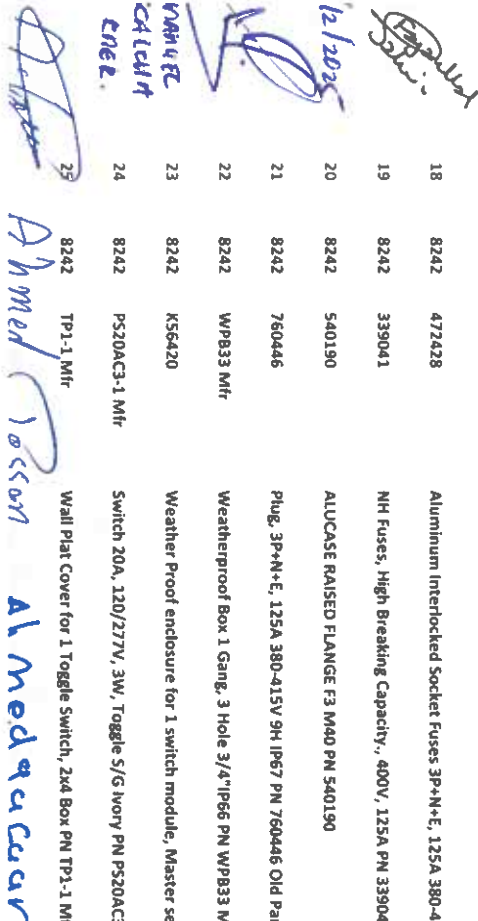 18 8242 472428 Aluminum Interlocked Socket Fuses 3P+N+E, 125A 380-4
19 8242 339041 NH Fuses, High Breaking Capacity., 400V, 125A PN 33904
12/2025
20 8242 540190 ALUCASE RAISED FLANGE F3 M40 PN 540190
21 8242 760446 Plug, 3P+N+E, 125A 380-415V 9H IP67 PN 760446 Old Pa
22 8242 WPB33 Mfr Weatherproof Box 1 Gang, 3 Hole 3/4"IP66 PN WPB33 M
23 8242 K56420 Weather Proof enclosure for 1 switch module, Master se
24 8242 PS20AC3-1 Mfr Switch 20A, 120/277V, 3W, Toggle S/G Ivory PN PS20AC3
25 8242 TP1-1 Mfr Wall Plat Cover for 1 Toggle Switch, 2x4 Box PN TP1-1 Mf
Ahmed